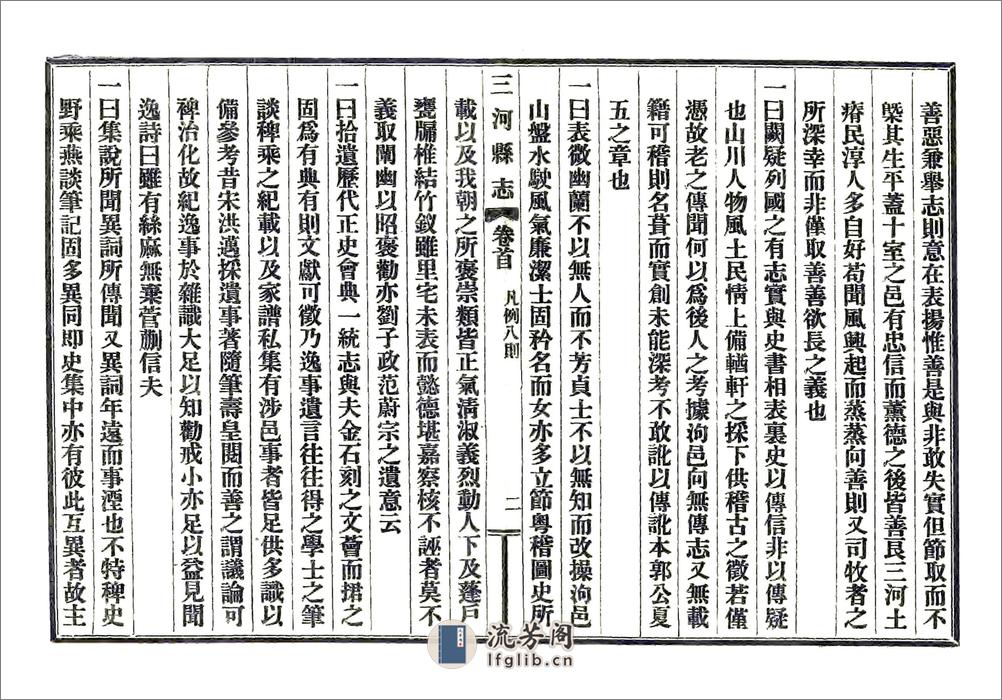 善惡兼舉志則意在表揚惟善是與非敢失實但節取而不
槩其生平蓋十室之邑有忠信而薰德之後皆善良三河土
瘠民淳人多自好苟聞風興起而蒸蒸向善則又司牧者之
所深幸而非僅取善善欲長之義也
一曰闕疑列國之有志實與史書相表裏史以傳信非以傳疑
也山川人物風土民情上備輶軒之採下供稽古之徵若僅
憑故老之傳聞何以爲後人之考據泃邑向無傳志又無載
籍可稽則名葺而實創未能深考不敢訛以傳訛本郭公夏
五之章也
一曰表微幽蘭不以無人而不芳貞士不以無知而改操泃邑
山盤水駛風氣廉潔士固矜名而女亦多立節粤稽圖史所
三河縣志 卷首 凡例八則 二
載以及我朝之所褒崇類皆正氣清淑義烈動人下及蓬戶
甕牖椎結竹釵雖里宅未表而懿德堪嘉察核不誣者莫不
義取闡幽以昭褒勸亦劉子政范蔚宗之遺意云
一曰拾遺歷代正史會典一統志與夫金石刻之文薈而捃之
固爲有典有則文獻可徵乃逸事遺言往往得之學士之筆
談稗乘之紀載以及家譜私集有涉邑事者皆足供多識以
備參考昔宋洪邁採遺事著隨筆壽皇閱而善之謂議論可
裨治化故紀逸事於雜識大足以知勸戒小亦足以益見聞
逸詩曰雖有絲麻無棄菅蒯信夫
一曰集說所聞異詞所傳聞又異詞年遠而事湮也不特稗史
野乘燕談筆記固多異同即史集中亦有彼此互異者故主
流芳阁
lfglib.cn